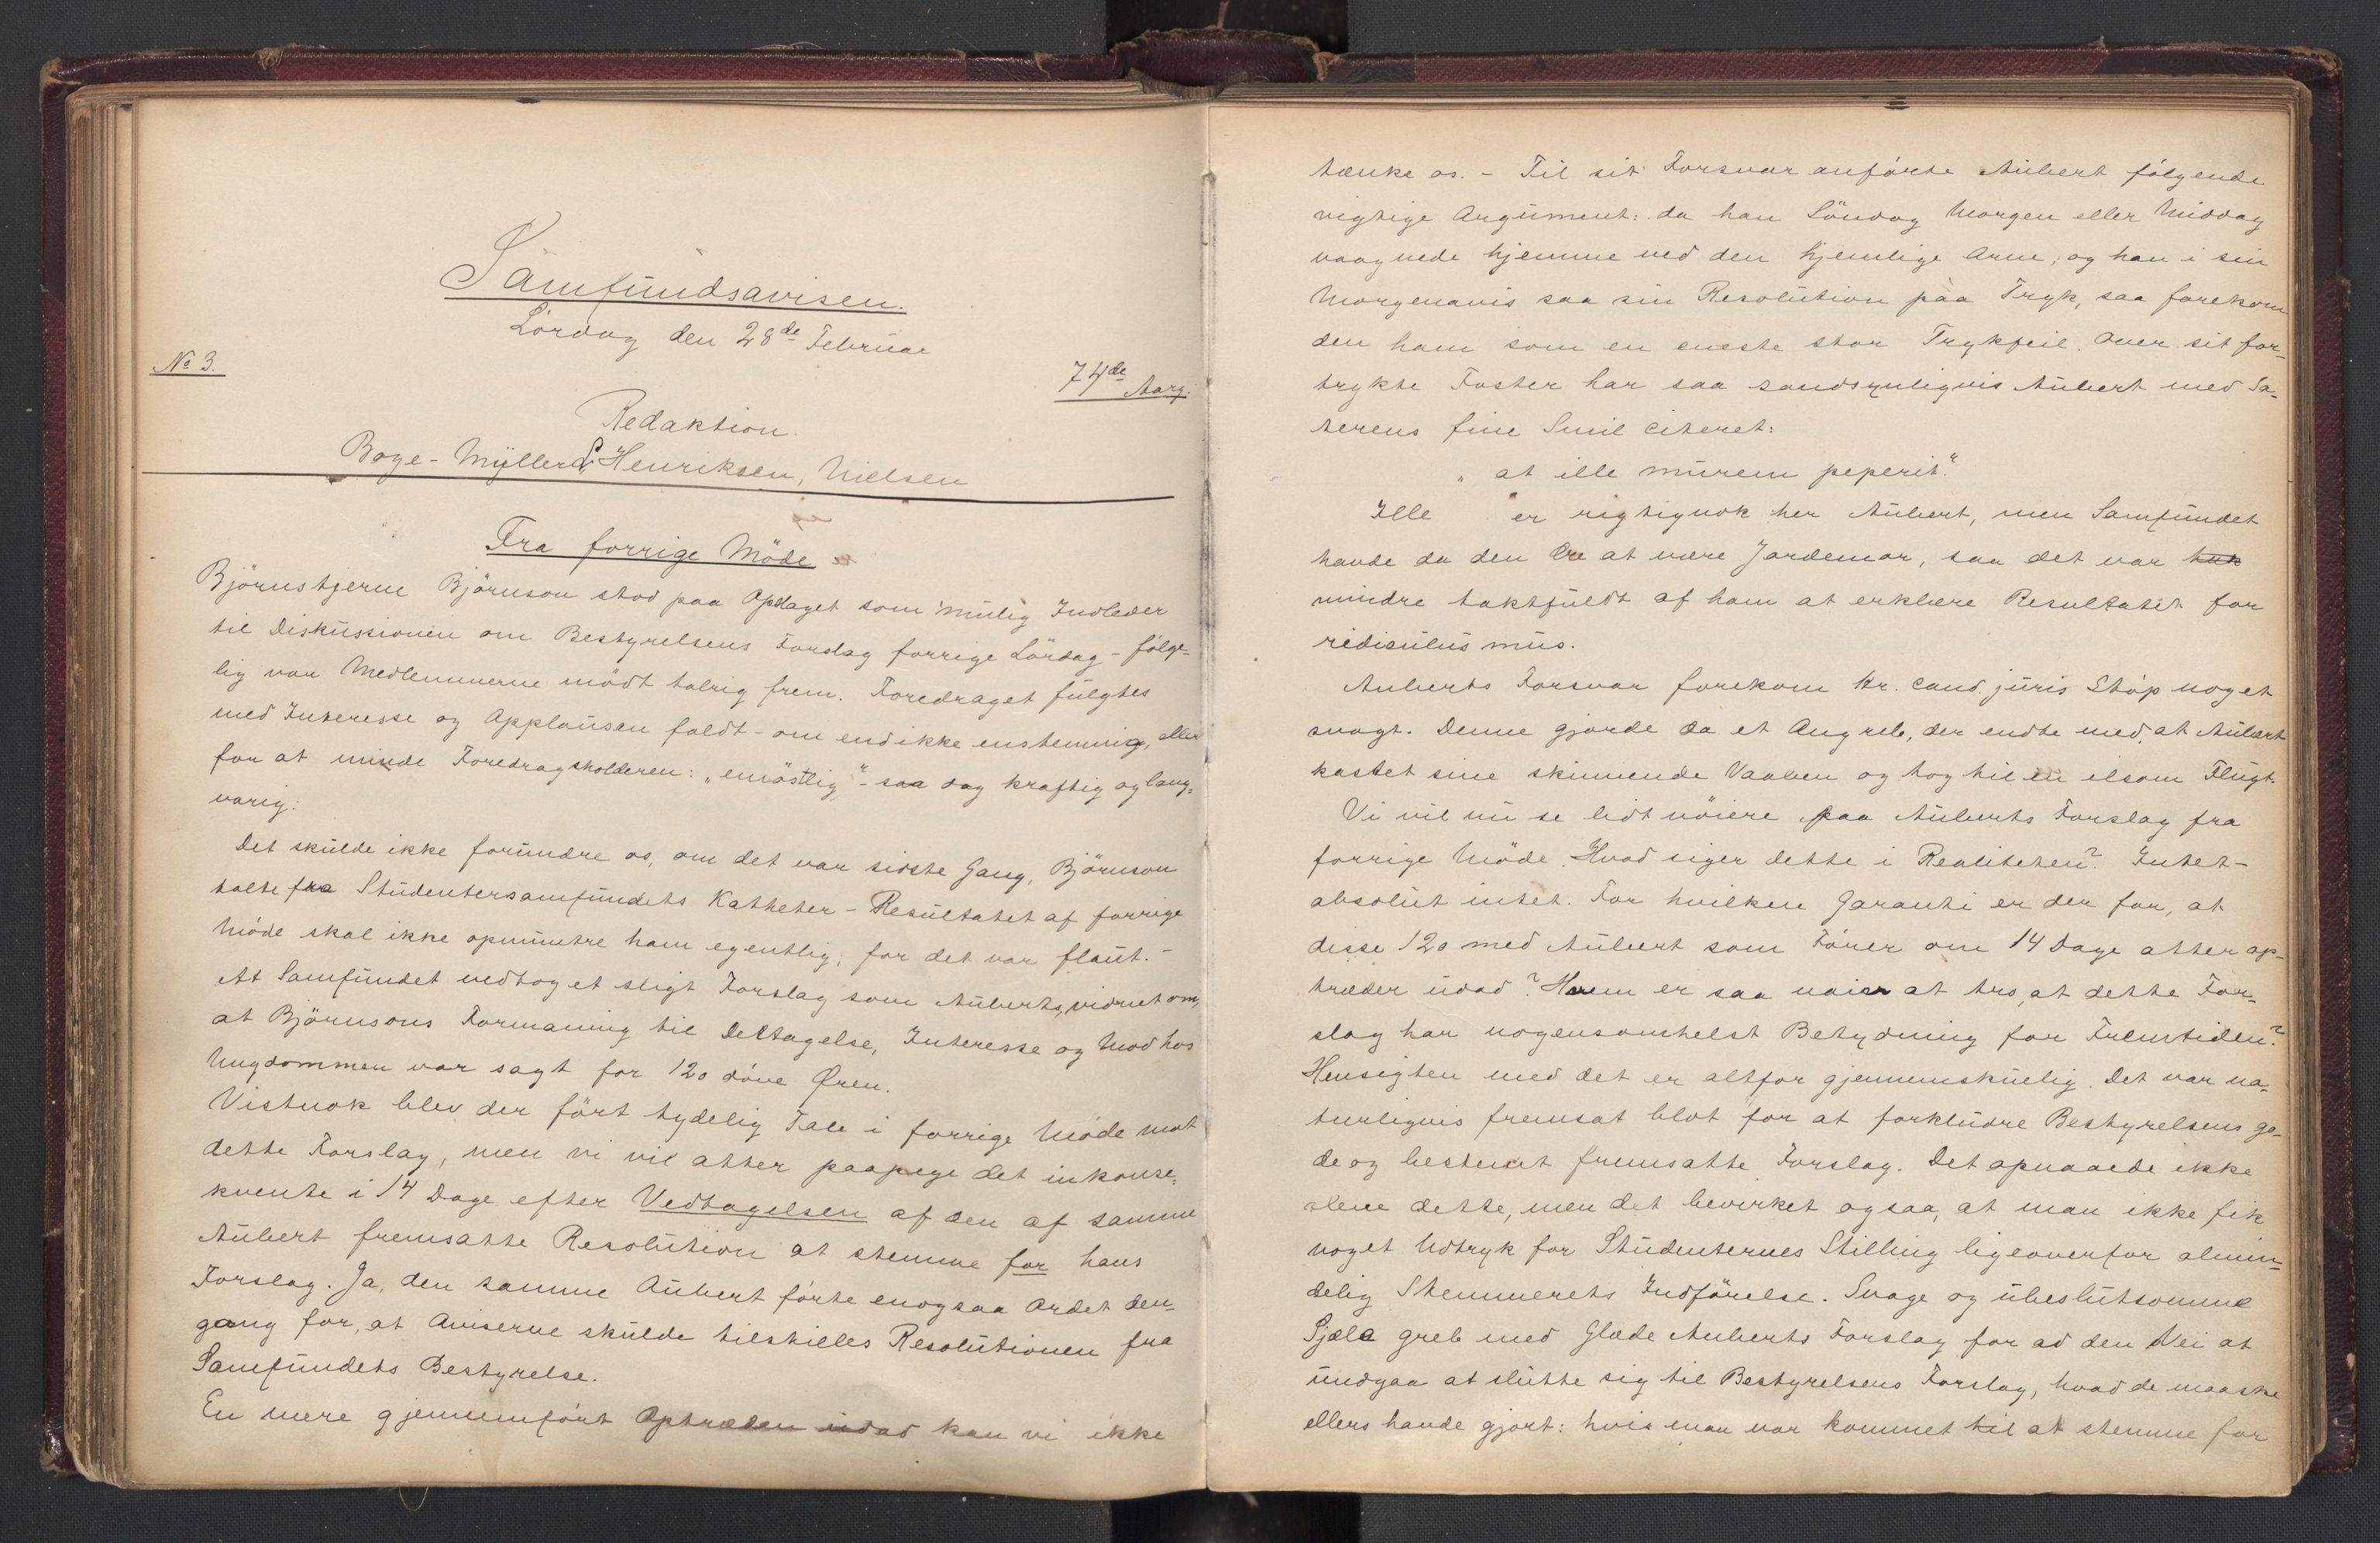 Samfundsavisen.
Lördag den 28de Februar
No 3.
74de Aarg.
Redaktion.
Boye-Mÿller, Henriksen, Nielsen
Fra forrige Möde
Björnstjerne Björnson stod paa Opslaget som mulig Indleder
til Diskussionen om Bestyrelsens Forslag forrige Lördag - fölge-
lig var Medlemmerne mödt talrig frem. Foredraget fulgtes
med Interesse og Applausen faldt - om end ikke enstemmig, eller
for at minde Foredragsholderen: „enröstlig" - saa dog kraftig og lang-
varig.
Det skulde ikke forundre os, om det var sidste Gang, Björnson
talte fra Studentersamfundets Katheter - Resultatet af forrige
Möde skal ikke opmuntre ham egentlig, for det var flaut. -
At Samfundet vedtog et sligt Forslag som Auberts, vidnet om,
at Björnsons Formaning til Deltagelse, Interesse og Mod hos
Ungdommen var sagt for 120 döve Øren.
Vistnok blev der fört tydelig Tale i forrige Möde mot
dette Forslag, men vi vil atter paapege det inkonse-
kvente i 14 Dage efter Vedtagelsen af den af samme
Aubert fremsatte Resolution at stemme for hans
Forslag. Ja, den samme Aubert förte enogsaa Ordet den-
gang for, at Aviserne skulde tilstilles Resolutionen fra
Samfundets Bestyrelse.
En mere gjennemfört Optræden udad kan vi ikke
tænke os. - Til sit Forsvar anförte Aubert fölgende
vigtige Argument: da han Söndag Morgen eller Middag
vaagnede hjemme ved den hjemlige Arne, og han i sin
Morgenavis saa sin Resolution paa Tryk, saa forekom
den ham som en eneste stor Trykfeil. Over sit for-
trykte Foster har saa sandsynligvis Aubert med Sa-
terens fine Smil citeret:
„at ille murem peperit."
Ille er rigtignok her Aubert, men Samfundet
havde da den Ære at være Jordemor, saa det var
mindre taktfuldt af ham at erklære Resultatet for
ridiculus mus.
Auberts Forsvar forekom Hr. cand. juris Stöp noget
svagt. Denne gjorde da et Angreb, der endte med, at Aubert
kastet sine skinnende Vaaben og tog til en ilsom Flugt.
Vi vil nu se lidt nöiere paa Auberts Forslag fra
forrige Möde. Hvad siger dette i Realiteten? Intet -
absolut intet. For hvilken Garanti er der for, at
disse 120 med Aubert som Förer om 14 Dage atter op-
træder udad? Hvem er saa naiv at tro, at dette For-
slag har nogensomhelst Betydning for Fremtiden?
Hensigten med det er altfor gjennemskuelig. Det var na-
turligvis fremsat blot for at forkludre Bestyrelsens go-
de og bestemt fremsatte Forslag. Det opnaaede ikke
alene dette, men det bevirket ogsaa, at man ikke fik
noget Udtryk for Studenternes Stilling ligeoverfor almin-
delig Stemmerets Indförelse. Svage og ubeslutsomme
Sjæle greb med Glæde Auberts Forslag for ad den Vei at
undgaa at slutte sig til Bestyrelsens Forslag, hvad de maaske
ellers havde gjort: hvis man var kommet til at stemme for